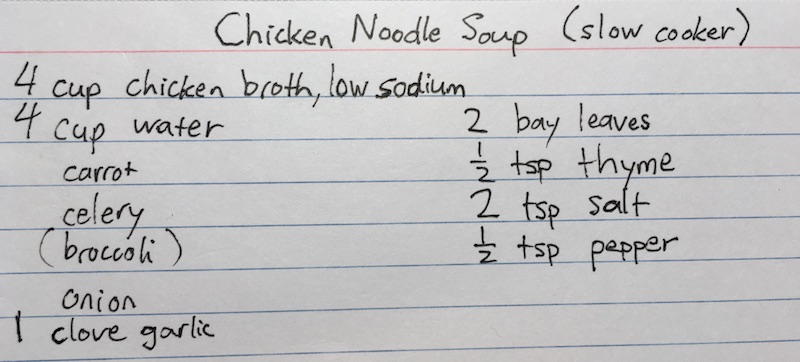 Chicken Noodle Soup (slow cooker)
4 cup chicken broth, low sodium
4 cup water
carrot
celery
(broccoli)
onion
1 clove garlic
2 bay leaves
1/2 tsp thyme
2 tsp salt
1/2 tsp pepper